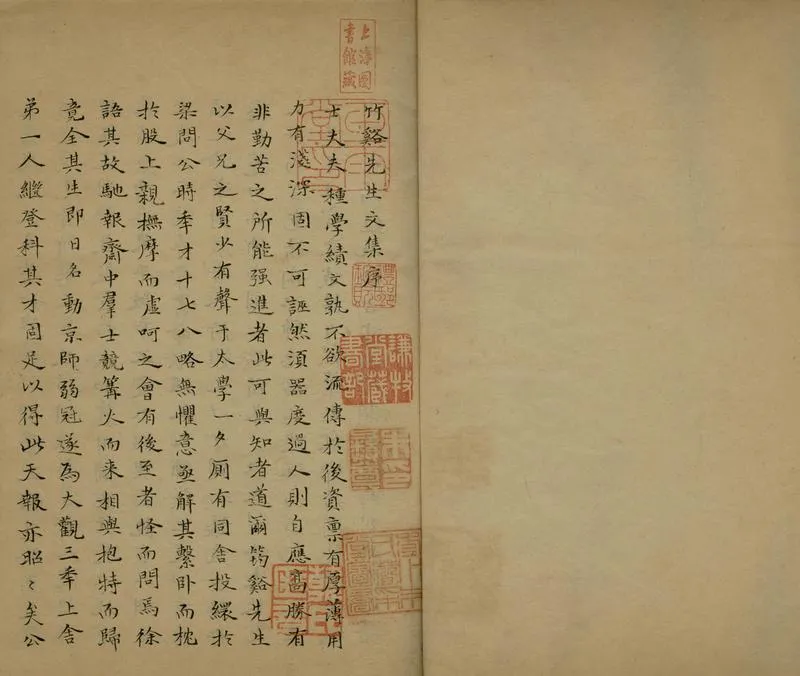 竹谿先生文集序
士大夫種學績文孰不欲流傳於後資稟有厚薄用
力有淺深固不可誣然須器度過人則自應髙勝有
非勤苦之所能强進者此可與知者道爾筠谿先生
以父兄之賢少有聲于太學一夕厠有同舍投繯於
梁問公時年才十七八略無懼意亟解其繫卧而枕
於股上親撫摩而虛呵之會有後至者怪而問焉徐
語其故馳報齋中羣士競篝火而来相與抱持而歸
竟全其生即日名動京師弱冠遂為大觀三年上舍
弟一人繼登科其才固足以得此天報亦昭〻矣公
上海圖書館藏
謙牧堂藏書記